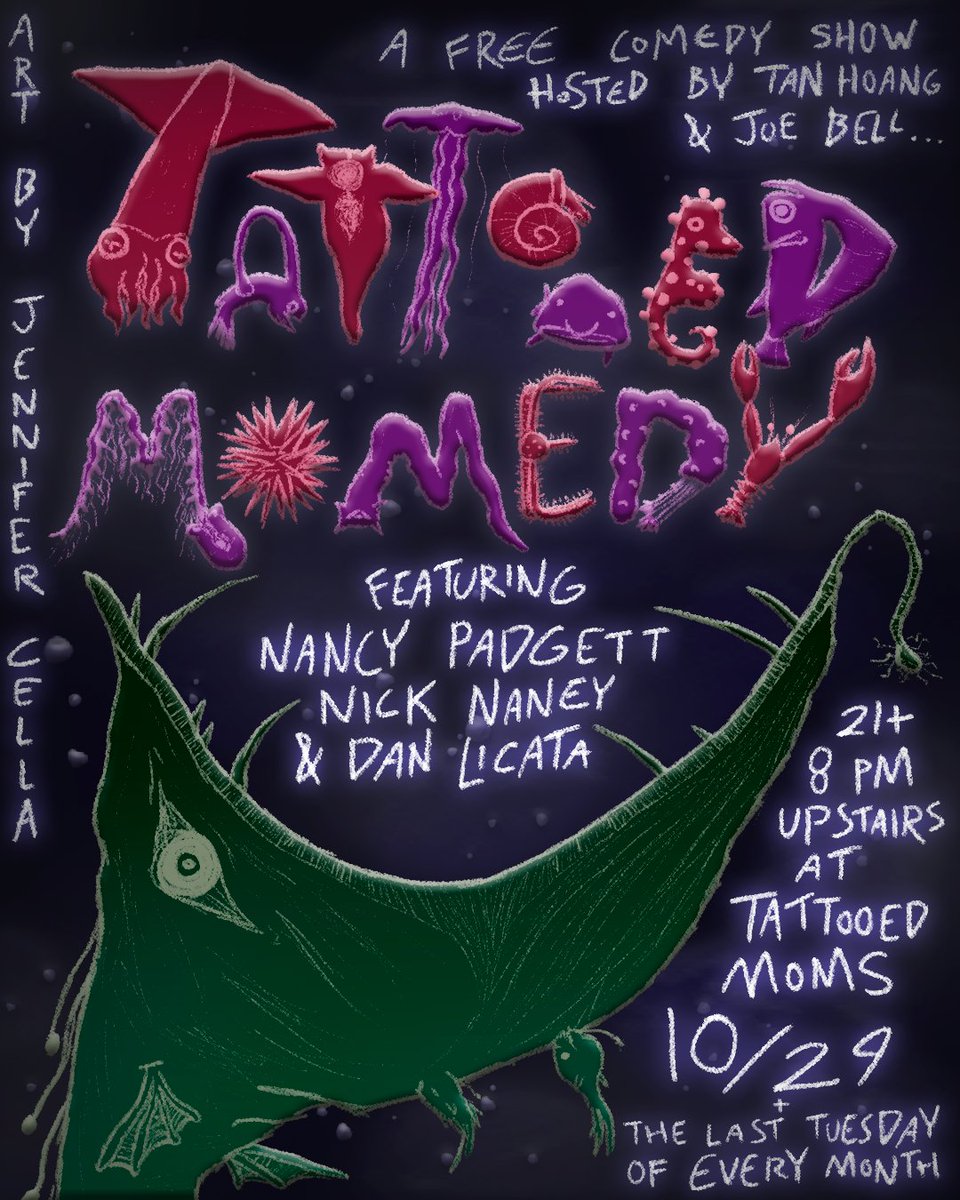 ART BY JENNIFER CELLA
A FREE COMEDY SHOW
HOSTED BY TAN HOANG
& JOE BELL...
TATTOOED
MOMEDY
FEATURING
NANCY PADGETT
NICK NANEY
& DAN LICATA
21+
8 PM
UPSTAIRS
AT
TATTOOED
MOMS
10/29
+
THE LAST TUESDAY
OF EVERY MONTH